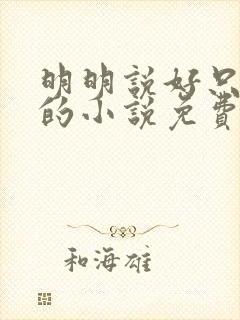 明明說好只
的小說免費
和海雄